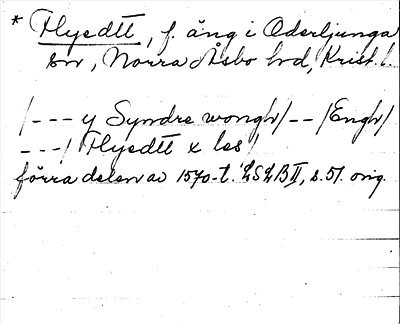 * Flyedtt, f. äng i Oderljunga
sn, Norra Åsbo hd, Krist. l.
/--- y Syndre wongh/--/Engh/
---/ Flyedtt x les/
förra delen av 1570-t. LSLB II, s. 51. orig.